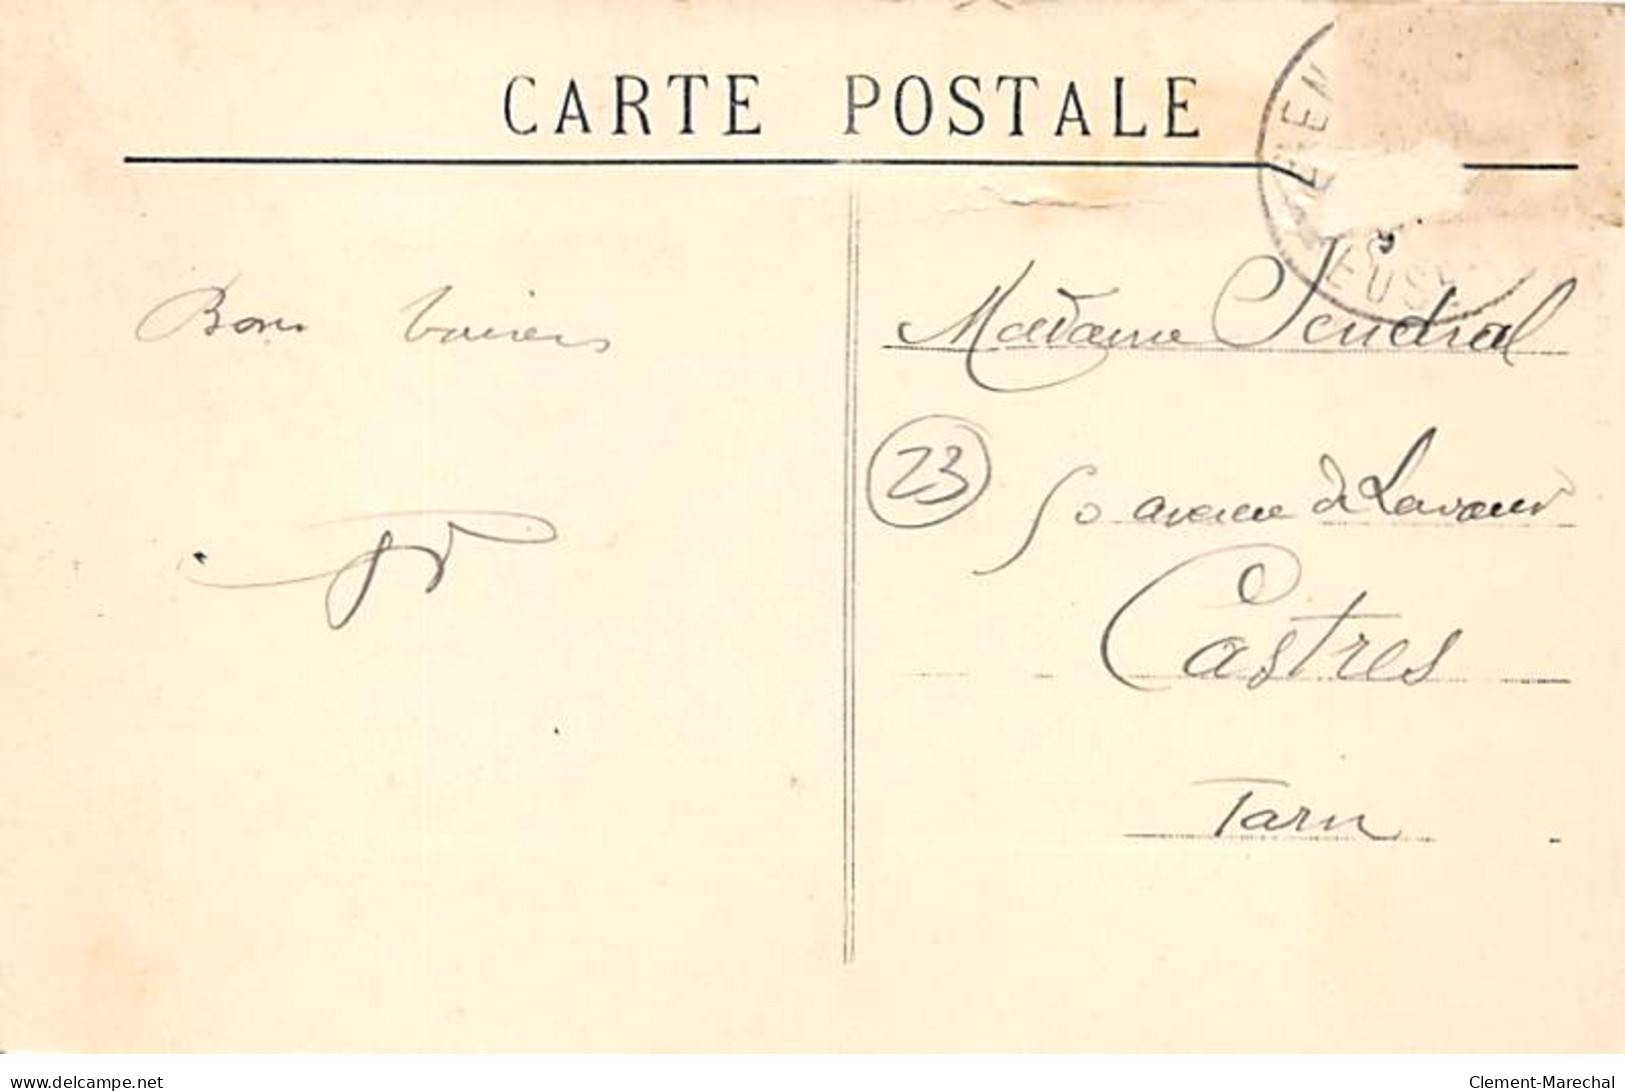 CARTE POSTALE
Bons baisers
Madame Sendral
23
50 avenue de Lavaur
Castres
Tarn
www.delcampe.net
Clement-Marechal